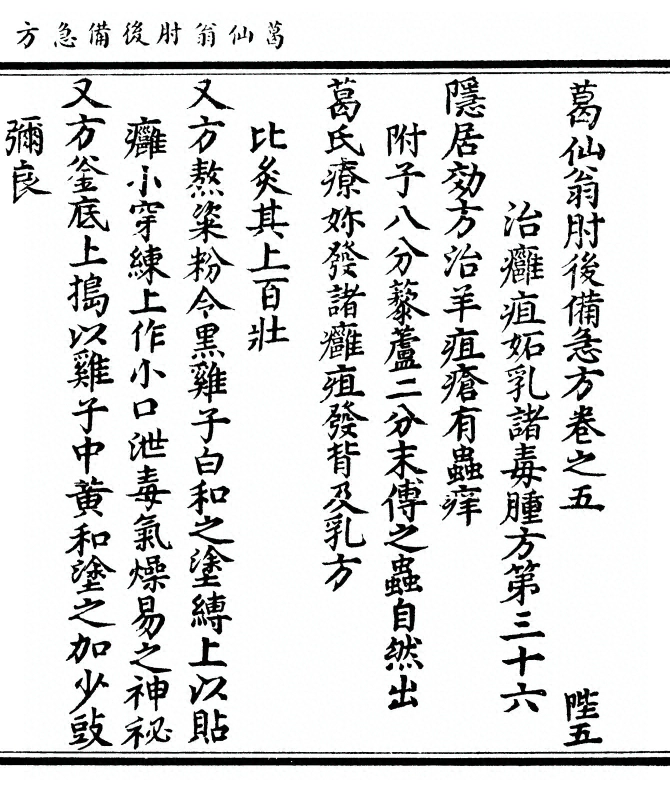 葛仙翁肘後備急方
葛仙翁肘後備急方卷之五 陛五
治癰疽妬乳諸毒腫方第三十六
隱居効方治羊疽瘡有蟲痒
附子八分藜蘆二分末傅之蟲自然出
葛氏療妳發諸癰疽發背及乳方
比灸其上百壯
又方熬粢粉令黑雞子白和之塗縛上以貼
癰小穿練上作小口泄毒氣燥易之神秘
又方釜底上搗以雞子中黃和塗之加少豉
彌良